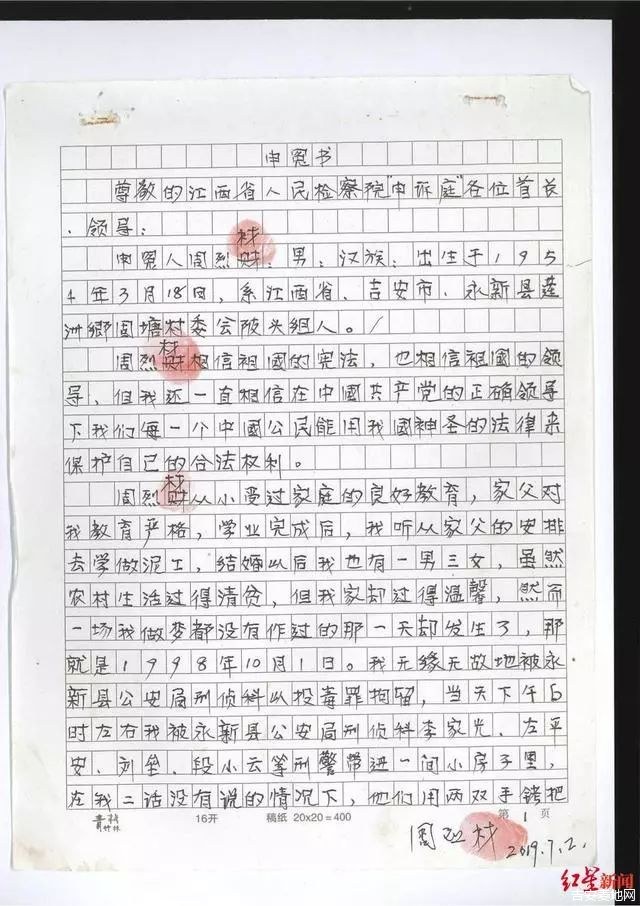 申冤书
尊敬的江西省人民检察院"申诉庭"各位首长
、领导:
申冤人周烈材:男:汉族:出生于195
4年3月18日,系江西省、吉安市、永新县莲
洲鄉周塘村委会陂头组人。/
周烈材相信祖國的宪法,也相信祖國的领
导、但我还一直相信在中國共产党的正确领导
下我们每一个中國公民能用我國神圣的法律来
保护自己的合法权利。
周烈材从小受过家庭的良好教育,家父对
我教育严格,学业完成后,我听从家父的安排
去学做泥土,结婚以后我也有一男三女,虽然
农村生活过得清贫,但我家却过得温馨,然而
一场我做梦都没有作过的那一天却发生了,那
就是1998年10月1日。我无缘无故地被永
新县公安局刑侦科以投毒罪拘留,当天下午6
时左右我被永新县公安局刑侦科李家光、左平
安、刘垒、段小云等刑警带进一间小房子里,
在我二话没有说的情况下,他们用两双手铐把
16开 稿纸 20x20=400 第1页
周烈材 2019.7.2.
红星新闻